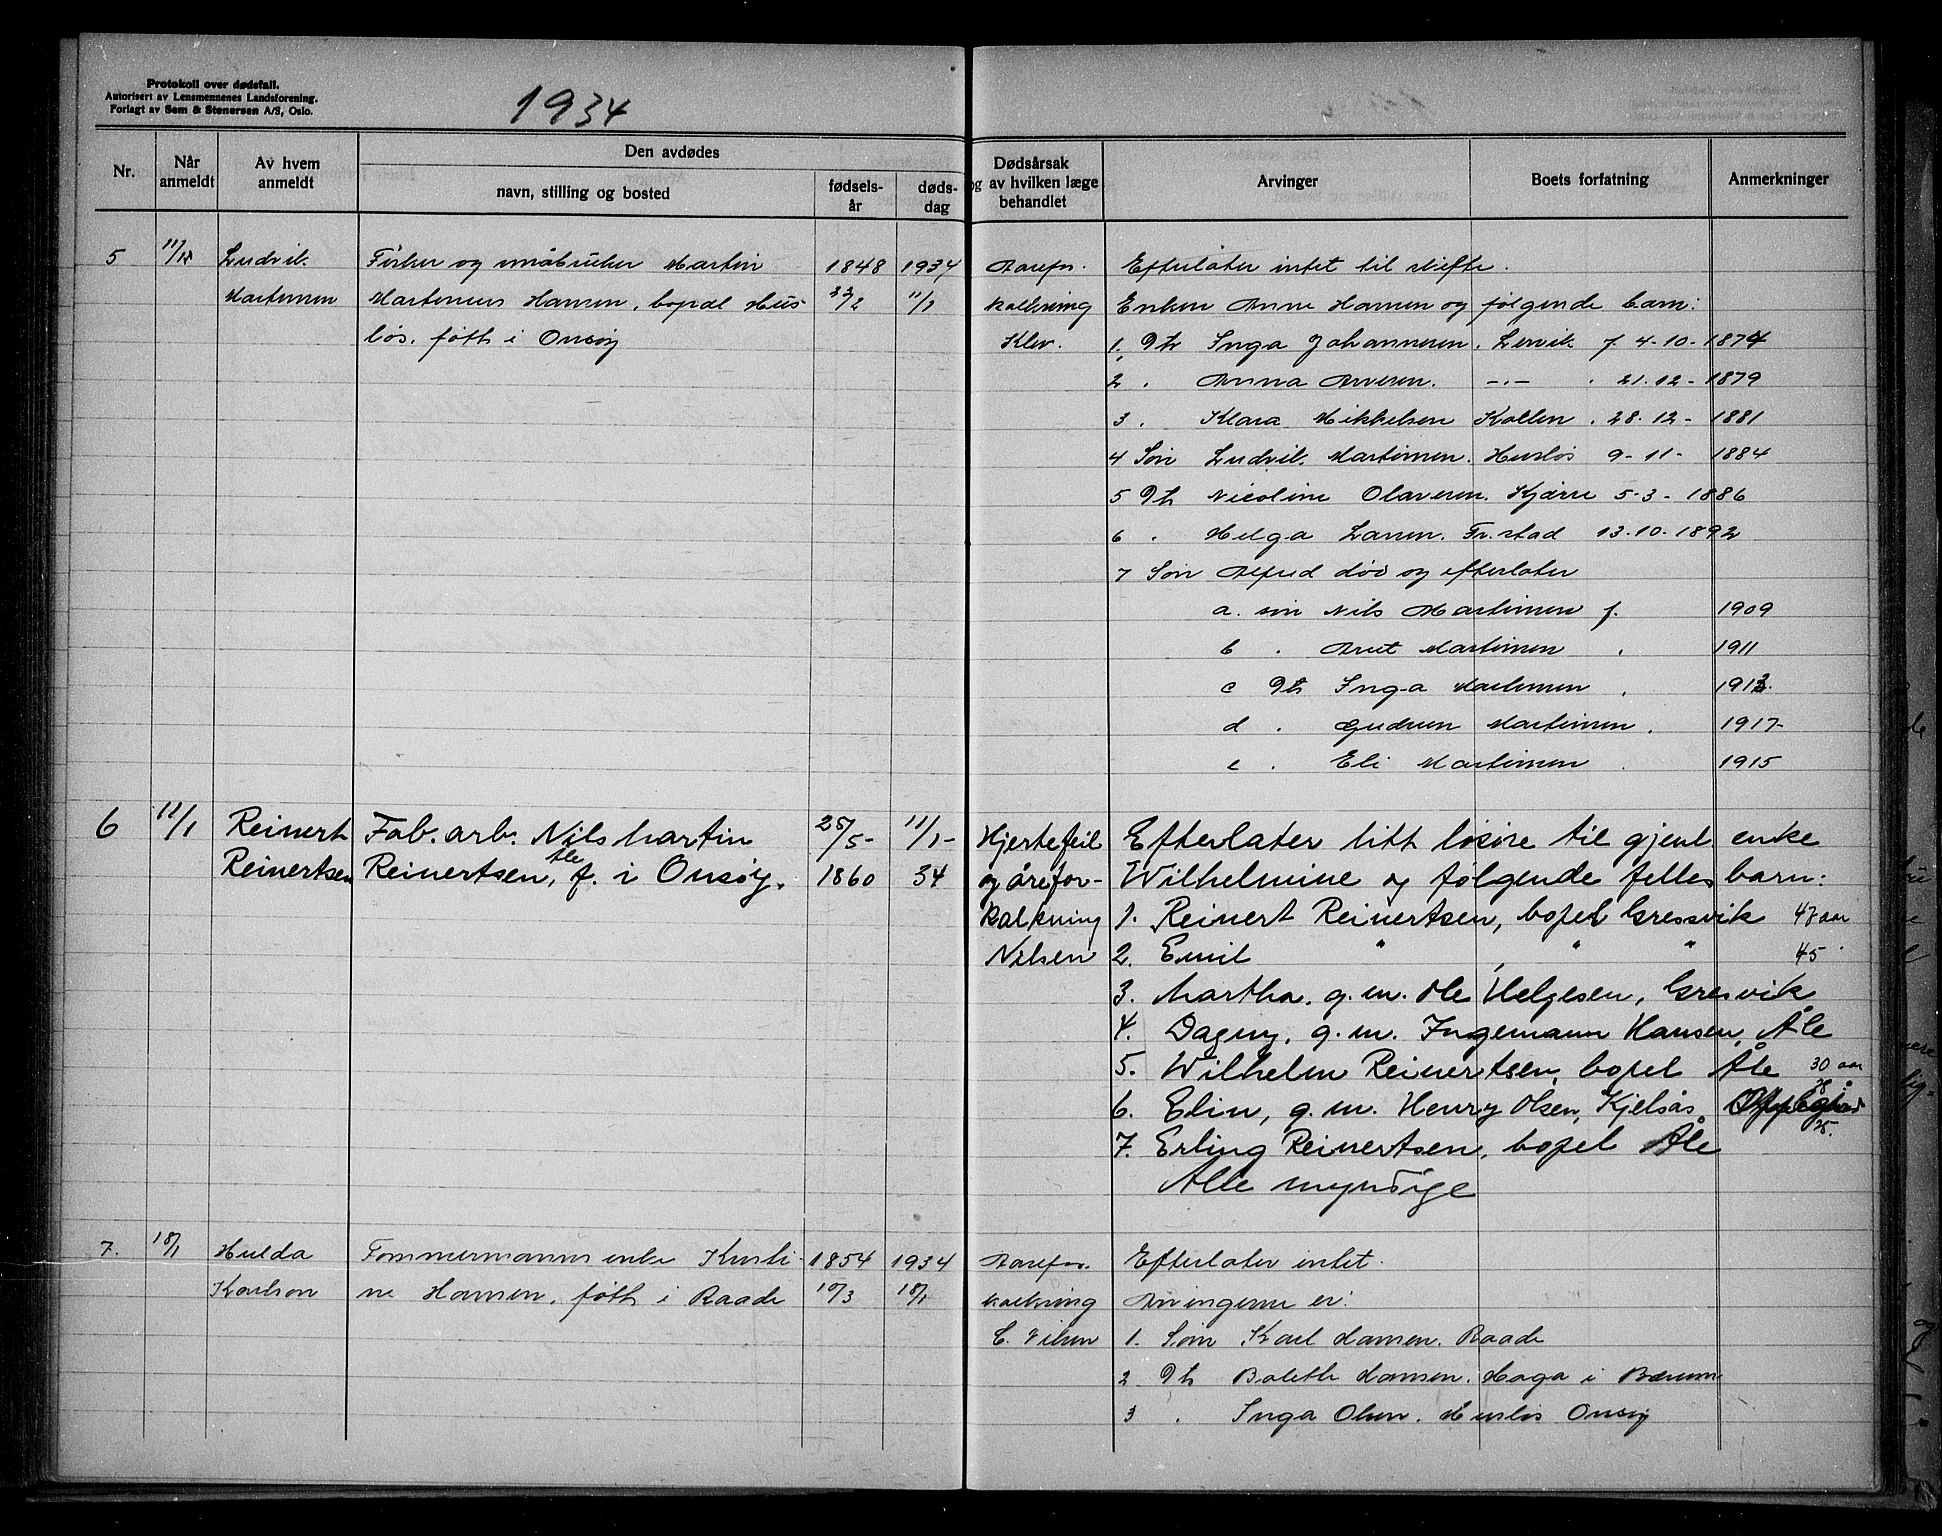 Protokoll over dødsfall.
Autorisert av Lensmennenes Landsforening.
Forlagt av Sem & Stenersen A/S, Oslo.
1934
Nr.
Når anmeldt
Av hvem anmeldt
Den avdødes
navn, stilling og bosted
fødsels-år
døds-dag
Dødsårsak
og av hvilken læge
behandlet
Arvinger
Boets forfatning
Anmerkninger
5 Ludvik Fisker og småbruker Martin 1848 1934 Aarefor. Efterlater intet til skifte.
Martinsen Martinius Hansen, bopæl Hus- 22/2 11/1 kalkning Enken Anne Hansen og følgende barn:
løs, født i Onsøy Klev. 1. Dtr Inga Johannesen. Lervik f. 4-10-1874
2 . Anna Arvesen. -.- . 21.12-1879
3 . Klara Mikkelsen Kollen . 28.12-1881
4 Søn Ludvik Martinsen. Husløs 9-11-1884
5 Dtr Nicoline Olavesen. Kjærre 5-3-1886
6 . Helga Larsen. Fr.stad 13.10.1892
7 Søn Alfred død og efterlater
a. søn Nils Martinsen f. 1909
b . Martinsen . 1911
c Dtr Inga Martinsen .
d . Gudrun Martinsen . 1917
e . Eli Martinsen . 1915
6 11/1 Reinert Fab. arb. Nils Martin 25/5- 11/1- Hjertefeil Efterlater litt løsøre til gjenl. enke
Reinertsen Reinertsen, Åle f. i Onsøy. 1860 34 og årefor- Wilhelmine og følgende felles barn:
kalkning 1. Reinert Reinertsen, bopel Gressvik 47 aar
Nilsen 2. Emil " " " 45 "
3. Martha, g.m. Ole Helgesen, Gresvik
4. Dagny, g.m. Ingemann Hansen, Åle
5. Wilhelm Reinertsen, bopel Åle 30 aar
6. Elin, g.m. Henry Olsen, Kjelsås
7. Erling Reinertsen, bopel Åle 25.
Alle myndige
7. 18/1 Hulda Tømmermanns enke Kristi- 1854 1934 Aarefor. Efterlater intet.
Karlson ne Hansen, født i Raade 10/3 18/1 kalkning Arvingerne er:
C. Nilsen 1. Søn Karl Hansen. Raade
2 Dtr Bolette Hansen. Haga i Bærum
3 . Inga Olsen. Husløs Onsøy